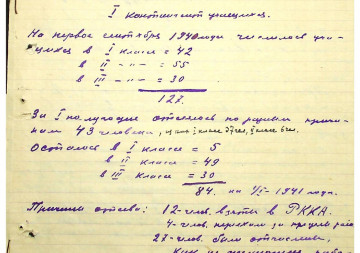 I Контингент учащихся.
На первое сентября 1940 года числилось уча-
щихся в I классе = 42
в II -"- -"- = 55
в III -"- -"- = 30
127.
За I полугодие отсеялось по разным причи-
нам 43 человека, из
Осталось в I классе = 5
в II классе = 49
в III классе = 30
84. на 1/I - 1941 года.
Причины отсева: 12-челов. взяты в РККА.
4-челов. переехали за пределы
27-челов. были отчислены,
как не